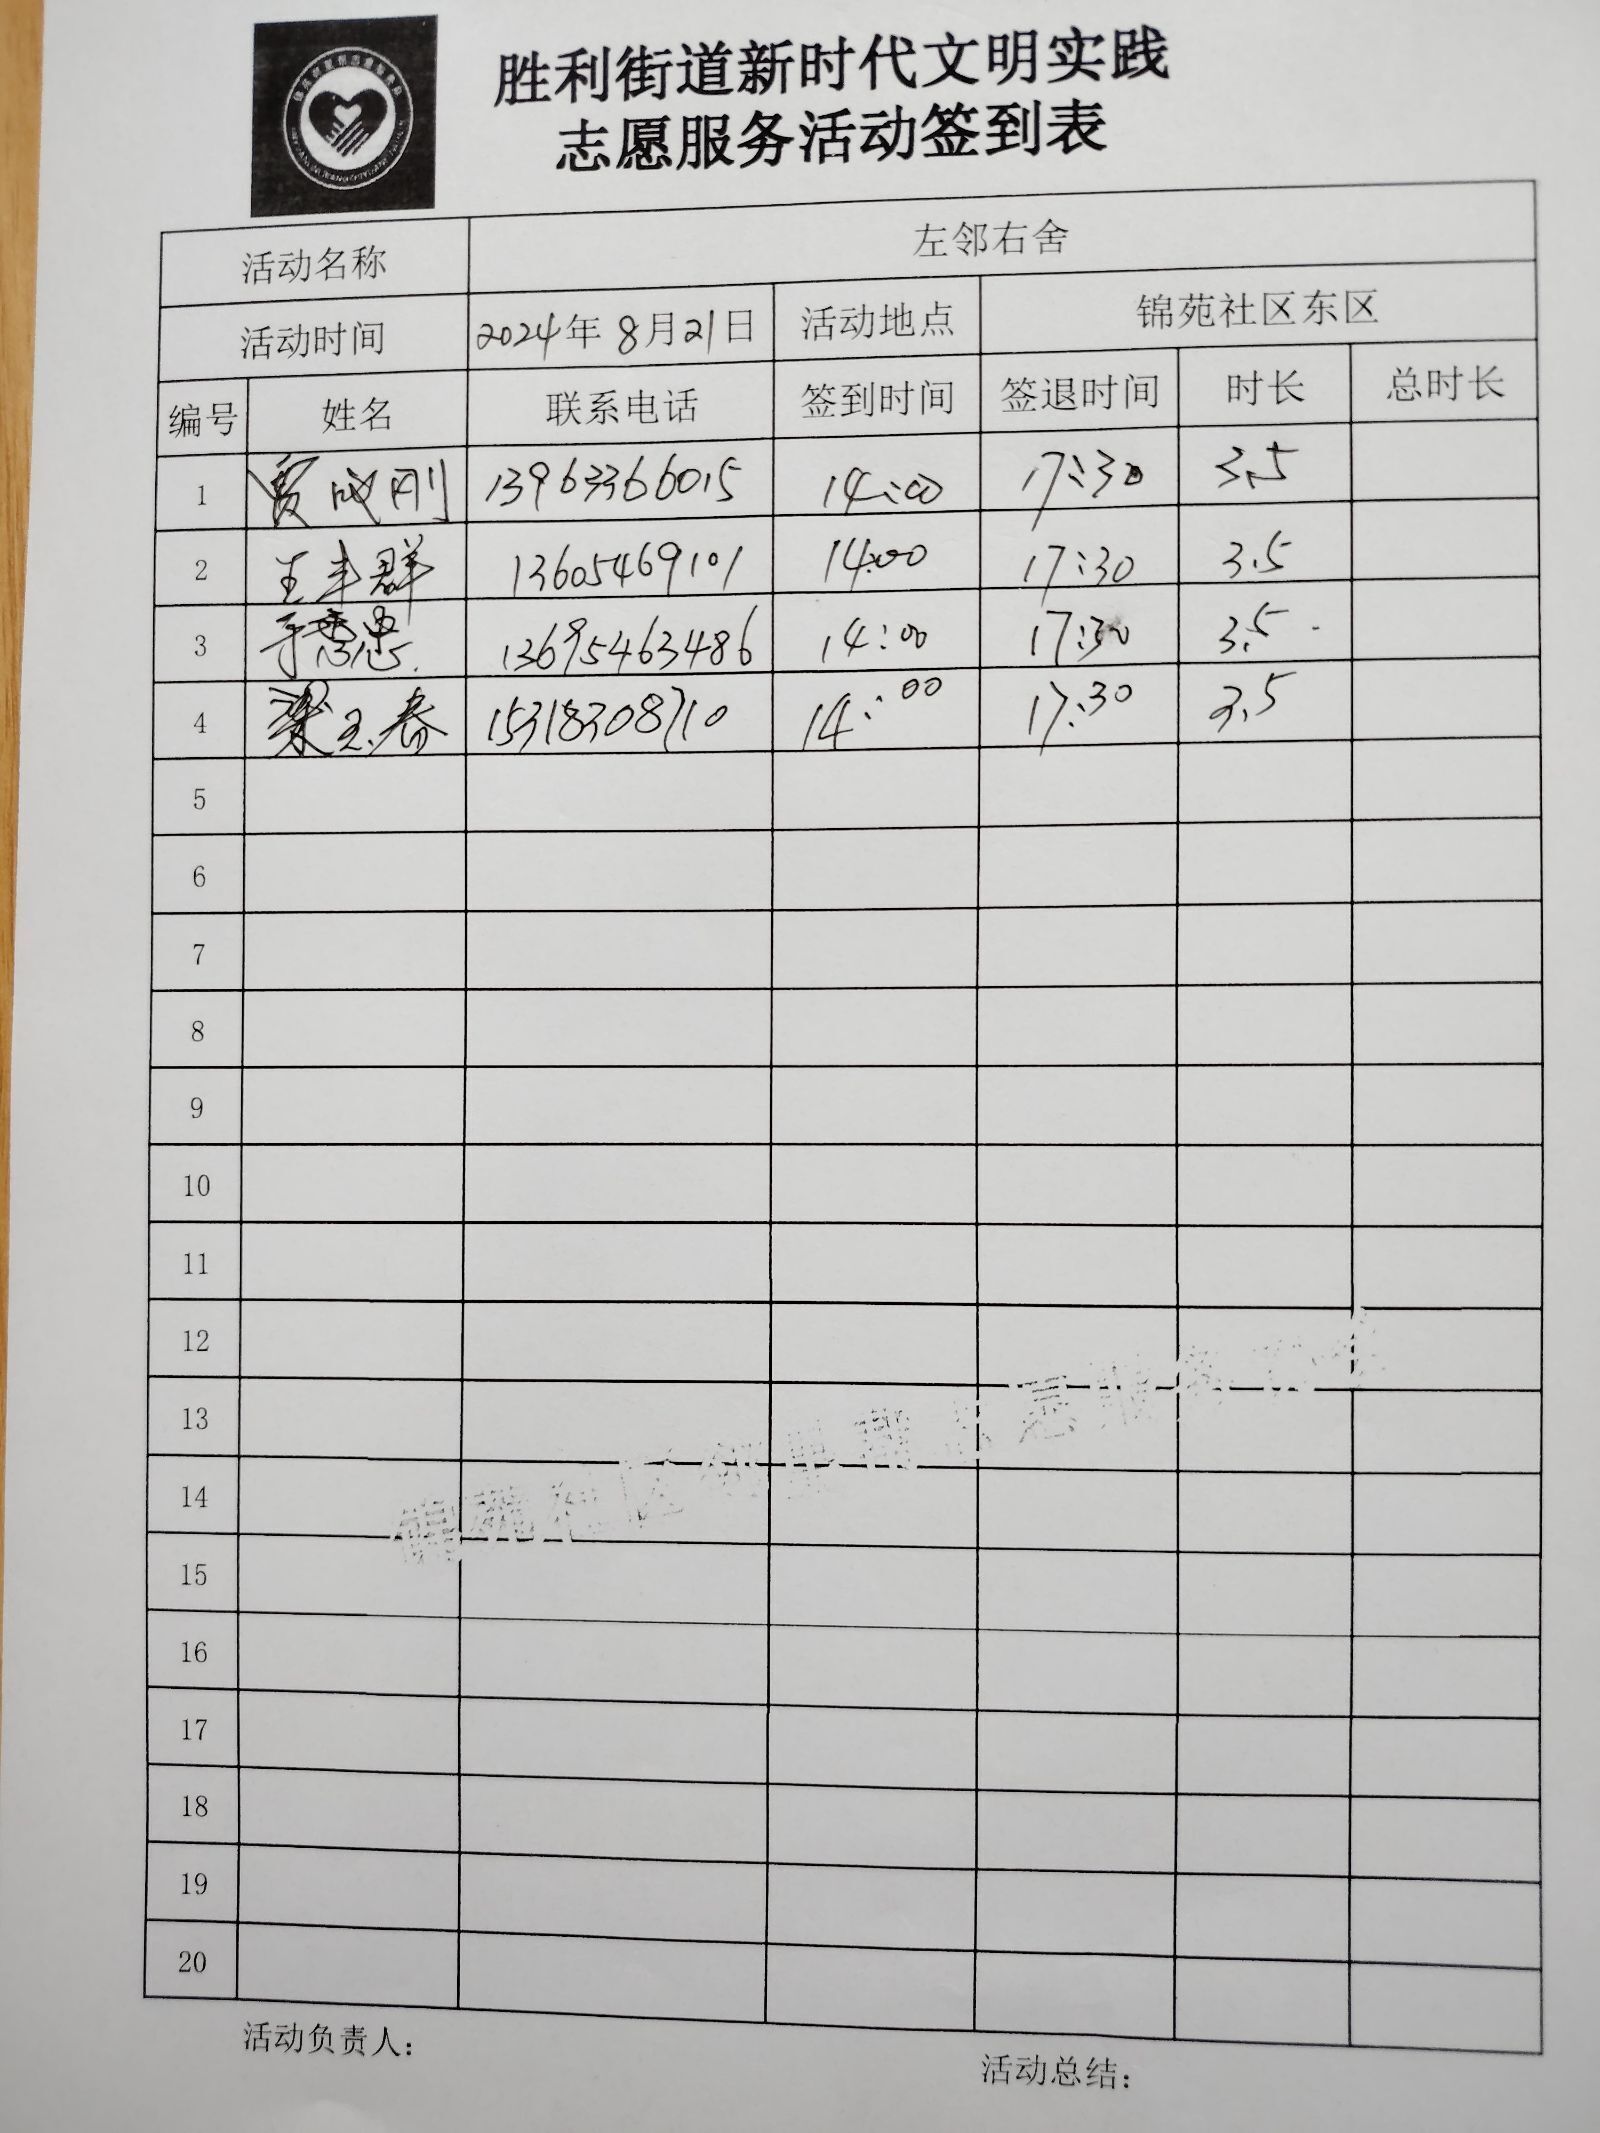 胜利街道新时代文明实践
志愿服务活动签到表
活动名称 左邻右舍
活动时间 2024年8月21日 活动地点 锦苑社区东区
编号 姓名 联系电话 签到时间 签退时间 时长 总时长
1 成刚 13963366015 14:00 17:30 3.5
2 王丰群 13605469101 14:00 17:30 3.5
3 13695463486 14:00 17:30 3.5
4 梁玉春 15318308710 14:00 17:30 3.5
5
6
7
8
9
10
11
12
13
14
15
16
17
18
19
20
活动负责人:
活动总结: